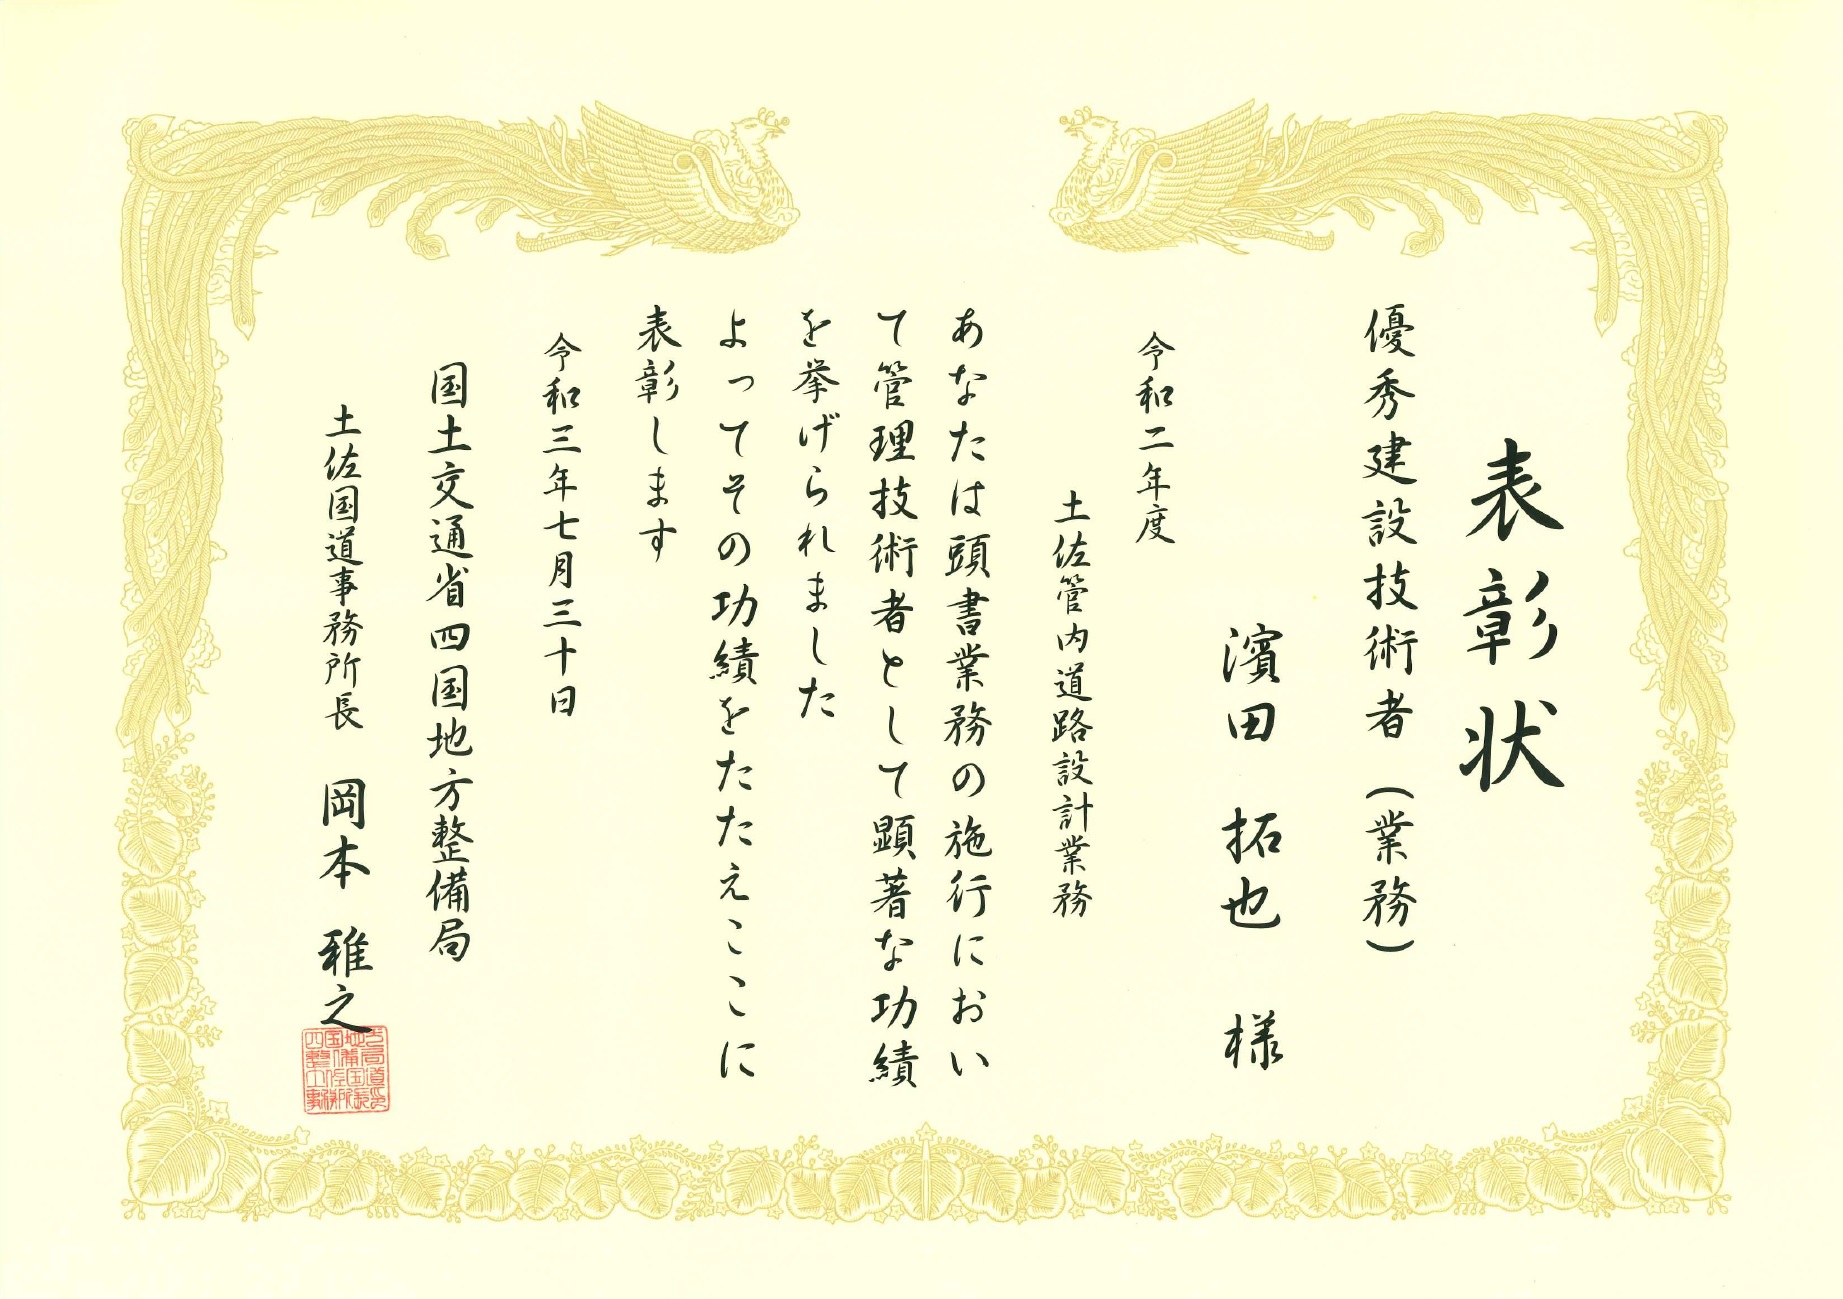 表彰状
優秀建設技術者（業務）
濱田 拓也 様
令和二年度
土佐管内道路設計業務
あなたは頭書業務の施行におい
て管理技術者として顕著な功績
を挙げられました
よってその功績をたたえここに
表彰します
令和三年七月三十日
国土交通省四国地方整備局
土佐国道事務所長 岡本 雅之